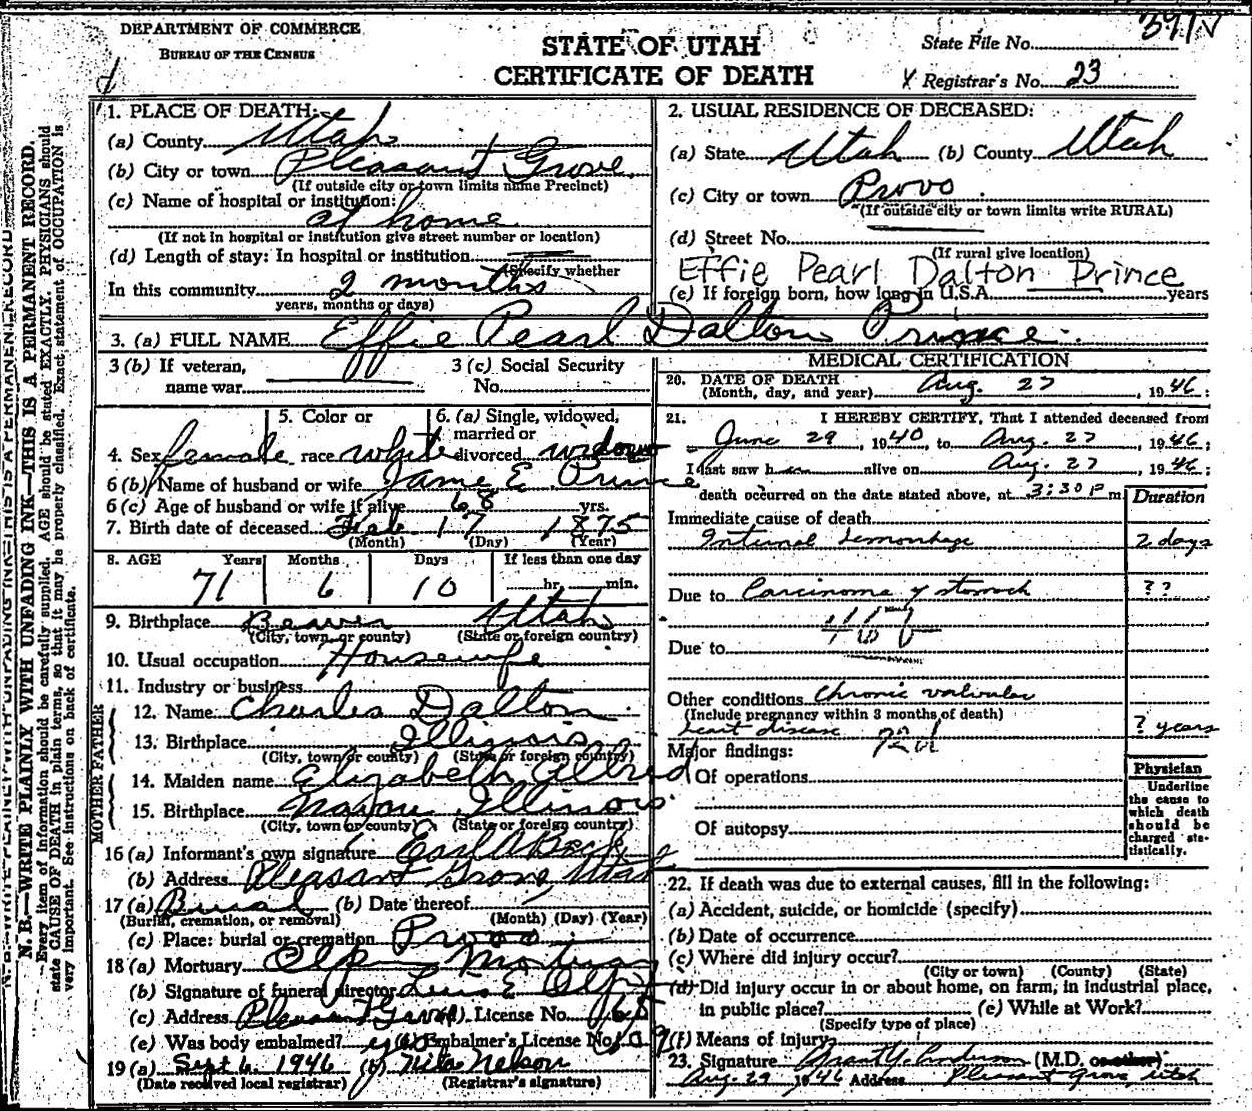 DEPARTMENT OF COMMERCE
BUREAU OF THE CENSUS
STATE OF UTAH
CERTIFICATE OF DEATH
State File No. 391
Registrar's No. 23
N. B.—WRITE PLAINLY WITH UNFADING INK—THIS IS A PERMANENT RECORD.
Every item of information should be carefully supplied. AGE should be stated EXACTLY. PHYSICIANS should
state CAUSE OF DEATH in plain terms, so that it may be properly classified. Exact statement of OCCUPATION is
very important. See instructions on back of certificate.
1. PLACE OF DEATH:
(a) County Utah
(b) City or town Pleasant Grove
(If outside city or town limits name Precinct)
(c) Name of hospital or institution:
at home
(If not in hospital or institution give street number or location)
(d) Length of stay: In hospital or institution
(Specify whether
In this community 2 months
years, months or days)
2. USUAL RESIDENCE OF DECEASED:
(a) State Utah (b) County Utah
(c) City or town Provo
(If outside city or town limits write RURAL)
(d) Street No.
(If rural give location)
Effie Pearl Dalton Prince
(e) If foreign born, how long in U.S.A. years
3. (a) FULL NAME Effie Pearl Dalton Prince
3 (b) If veteran, name war
3 (c) Social Security No.
4. Sex female
5. Color or race white
6. (a) Single, widowed, married or divorced widow
6 (b) Name of husband or wife Jame E Prince
6 (c) Age of husband or wife if alive 68 yrs.
7. Birth date of deceased Feb 17 1875
(Month) (Day) (Year)
8. AGE Years Months Days If less than one day
71 6 10 hr. min.
9. Birthplace Beaver Utah
(City, town, or county) (State or foreign country)
10. Usual occupation Housewife
11. Industry or business
FATHER
12. Name Charles Dalton
13. Birthplace Illinois
(City, town or county) (State or foreign country)
MOTHER
14. Maiden name Elizabeth Allred
15. Birthplace Illinois
(City, town or county) (State or foreign country)
16 (a) Informant's own signature Earl
(b) Address Pleasant Grove Utah
17 (a) Burial (b) Date thereof
(Burial, cremation, or removal) (Month) (Day) (Year)
(c) Place: burial or cremation Provo
18 (a) Mortuary Olpin Mortuary
(b) Signature of funeral director E Olpin
(c) Address Pleasant Grove License No.
(e) Was body embalmed? yes Embalmer's License No.
19 (a) Sept 6. 1946 (b) Nita Nelson
(Date received local registrar) (Registrar's signature)
MEDICAL CERTIFICATION
20. DATE OF DEATH Aug. 27, 1946
(Month, day, and year)
21. I HEREBY CERTIFY, That I attended deceased from
June 29, 1940, to Aug. 27 1946;
I last saw her alive on Aug. 27, 1946;
death occurred on the date stated above, at 3:30 P m.
Duration
Immediate cause of death
Internal hemorrhage 2 days
Due to Carcinoma of stomach ??
Due to
Other conditions Chronic valvular
(Include pregnancy within 3 months of death)
heart disease ? years
Major findings:
Of operations
Of autopsy
Physician
Underline
the cause to
which death
should be
charged sta-
tistically.
22. If death was due to external causes, fill in the following:
(a) Accident, suicide, or homicide (specify)
(b) Date of occurrence
(c) Where did injury occur?
(City or town) (County) (State)
(d) Did injury occur in or about home, on farm, in industrial place,
in public place? (e) While at Work?
(Specify type of place)
(f) Means of injury
23. Signature Grant Y. Anderson (M.D. or other)
Aug. 29 1946 Address Pleasant Grove, Utah